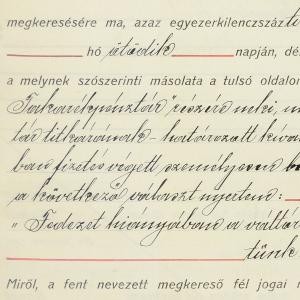 megkeresésére ma, azaz egyezerkilenczszáz ti
hó ötödik napján, dé
a melynek szószerinti másolata a tulsó oldalon
Takarékpénztár" részére neki, m
tár titkárának - határozott kíván
ban fizetés végett személyesen be
a következő választ nyertem:
" Fedezet hiányában a váltó
tünk
Miről, a fent nevezett megkereső fél jogai